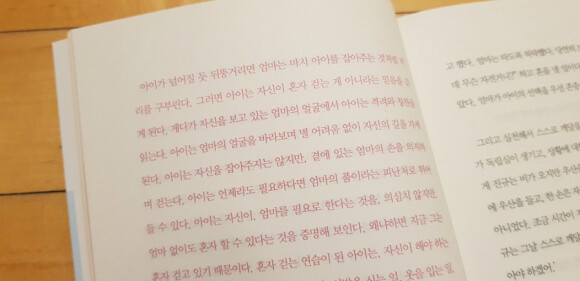 아이가 넘어질 듯 뒤뚱거리면 엄마는 마치 아이를 잡아주는 것처럼
리를 구부린다. 그러면 아이는 자신이 혼자 걷는 게 아니라는 믿음을
게 된다. 게다가 자신을 보고 있는 엄마의 얼굴에서 아이는 격려와 칭찬을
읽는다. 아이는 엄마의 얼굴을 바라보며 별 어려움 없이 자신의 길을 가게
된다. 아이는 자신을 잡아주지는 않지만, 곁에 있는 엄마의 손을 의지하
며 걷는다. 아이는 언제라도 필요하다면 엄마의 품이라는 피난처로 뛰어
들 수 있다. 아이는 자신이, 엄마를 필요로 한다는 것을, 의심치 않지만
엄마 없이도 혼자 할 수 있다는 것을 증명해 보인다. 왜냐하면 지금 그는
혼자 걷고 있기 때문이다. 혼자 걷는 연습이 된 아이는, 자신이 해야 하는
신는 일, 옷을 입는 일
고 했다. 엄마는 허락했다. 당연히
데 무슨 하고 혼을 낼 일이
았다. 엄마가 아이의 선택을 우선 존중
그리고 실천해서 스스로 깨닫게
가 독립심이 생기고, 상황에 대한
게 진규는 비가 오지만 우산
에 우산을 들고, 한 손은
아니었다. 조금 시간이
규는 그날 스스로 깨달
아야 하겠어.'